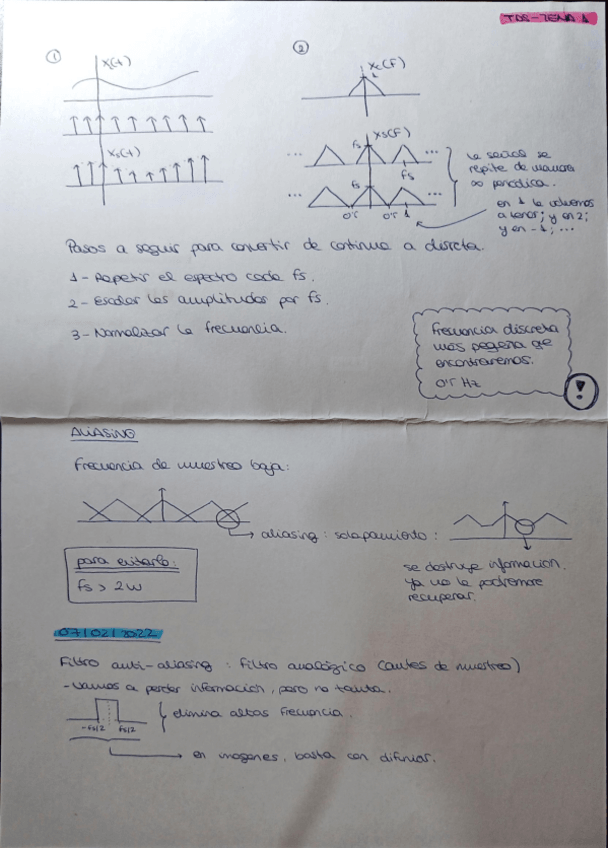 TDS-TEMA 1
1
x(t)
xs(t)
2
Xc(F)
1
fs
Xs(F)
... ...
fs
fs
... ...
0'5 0'5 1
la señal se
repite de manera
∞ periódica.
en 1 la volvemos
a tener; y en 2;
y en -1; ...
Pasos a seguir para convertir de continua a discreta.
1- Repetir el espectro cada fs.
2- Escalar las amplitudes por fs.
3- Normalizar la frecuencia.
frecuencia discreta
más pequeña que
encontraremos.
0'5 Hz
!
ALIASING
Frecuencia de muestreo baja:
aliasing: solapamiento:
para evitarlo:
fs > 2W
se destruye informacion.
ya no la podremos
recuperar.
07/02/2022
Filtro anti-aliasing: filtro analógico (antes de muestreo)
-Vamos a perder informacion, pero no tanta.
-fs/2 fs/2
elimina altas frecuencia.
en imagenes, basta con difumiar.